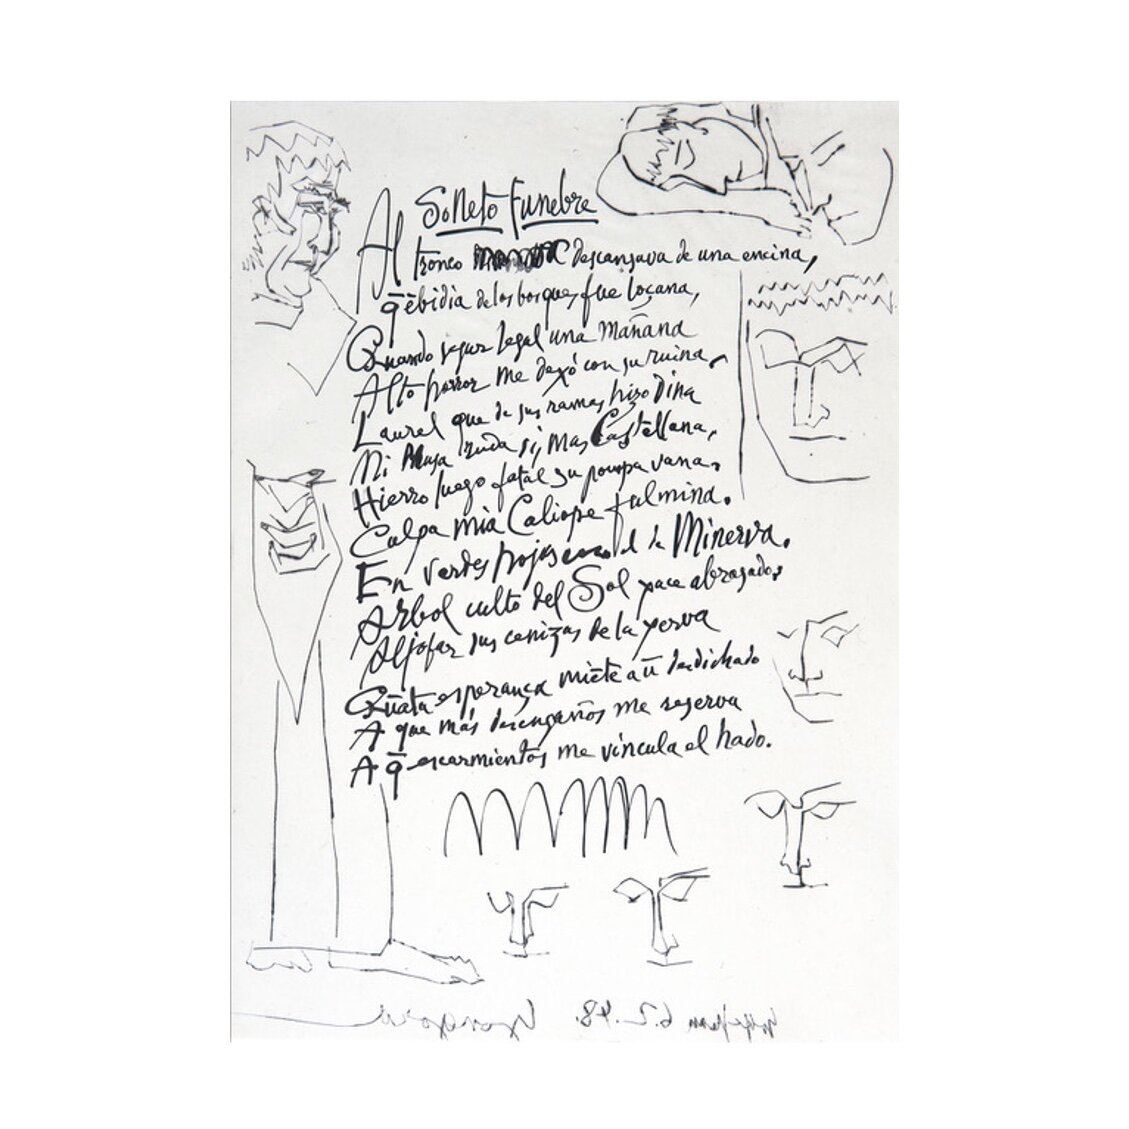 Soneto funebre
Al tronco descansava de una encina,
q̄ ēbidia de los bosques fue loçana,
Quando segur legal una mañana
Alto horror me dexó con su ruina.
Laurel que de sus ramas hizo dina
Mi Musa ruda si, mas Castellana,
Hierro luego fatal su pompa vana.
Culpa mia Caliope fulmina.
En verdes hojas el de Minerva.
Arbol culto del Sol yace abrasado,
Aljofar sus cenizas de la yerva
Quāta esperança miēte a ū desdichado
A que más desengaños me reserva
A q̄ escarmientos me vincula el hado.
6.2.48.
Gongora